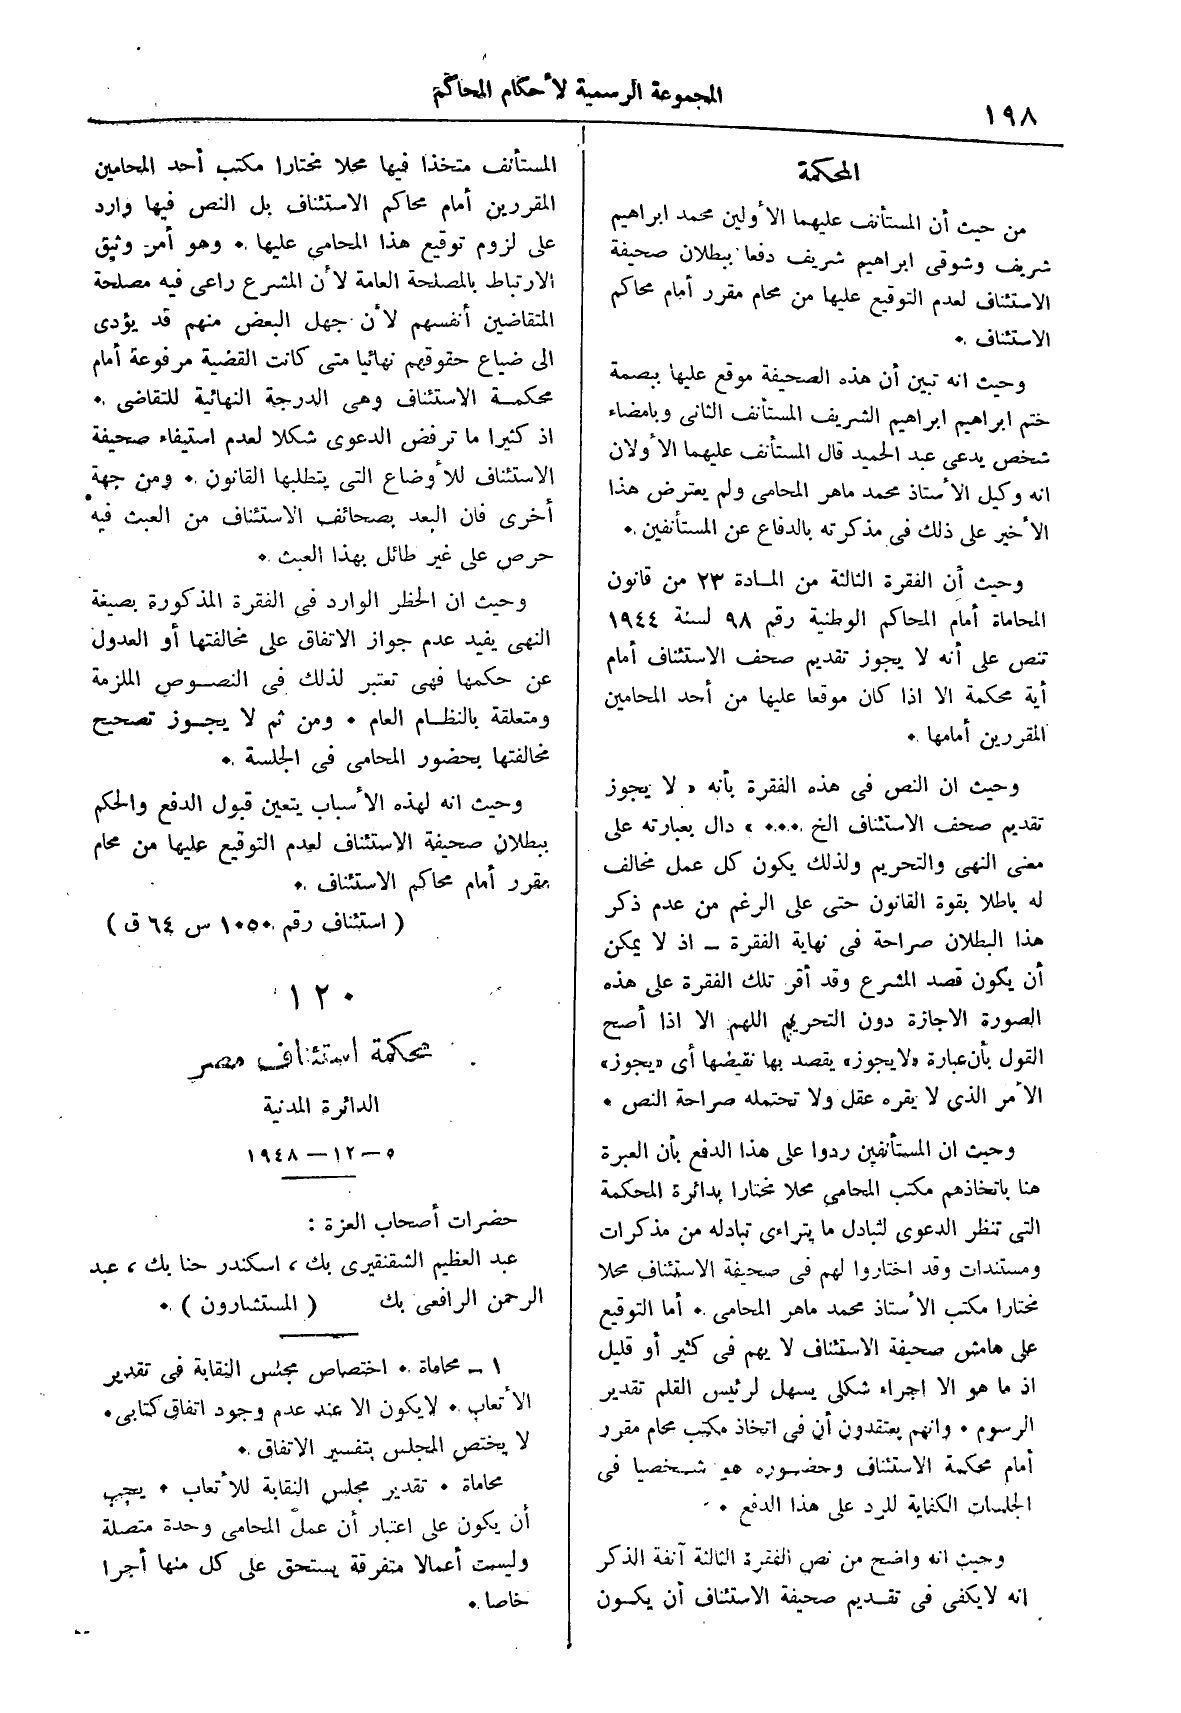 ١٩٨
المجموعة الرسمية لأحكام المحاكم
المحكمة
من حيث أن المستأنف عليهما الأولين محمد ابراهيم
شريف وشوقى ابراهيم شريف دفعا ببطلان صحيفة
الاستئناف لعدم التوقيع عليها من محام مقرر أمام محاكم
الاستئناف .
وحيث انه تبين أن هذه الصحيفة موقع عليها ببصمة
ختم ابراهيم ابراهيم الشريف المستأنف الثانى وبامضاء
شخص يدعى عبد الحميد قال المستأنف عليهما الأولان
انه وكيل الأستاذ محمد ماهر المحامى ولم يعترض هذا
الأخير على ذلك فى مذكرته بالدفاع عن المستأنفين .
وحيث أن الفقرة الثالثة من المادة ٢٣ من قانون
المحاماة أمام المحاكم الوطنية رقم ٩٨ لسنة ١٩٤٤
تنص على أنه لا يجوز تقديم صحف الاستئناف أمام
أية محكمة الا اذا كان موقعا عليها من أحد المحامين
المقررين أمامها .
وحيث ان النص فى هذه الفقرة بأنه « لا يجوز
تقديم صحف الاستئناف الخ ... » دال بعبارته على
معنى النهى والتحريم ولذلك يكون كل عمل مخالف
له باطلا بقوة القانون حتى على الرغم من عدم ذكر
هذا البطلان صراحة فى نهاية الفقرة – اذ لا يمكن
أن يكون قصد المشرع وقد أقر تلك الفقرة على هذه
الصورة الاجازة دون التحريم اللهم الا اذا أصح
القول بأن عبارة «لايجوز» يقصد بها نقيضها أى «يجوز»
الأمر الذى لا يقره عقل ولا تحتمله صراحة النص .
وحيث ان المستأنفين ردوا على هذا الدفع بأن العبرة
هنا باتخاذهم مكتب المحامى محلا مختارا بدائرة المحكمة
التى تنظر الدعوى لتبادل ما يتراءى تبادله من مذكرات
ومستندات وقد اختاروا لهم فى صحيفة الاستئناف محلا
مختارا مكتب الأستاذ محمد ماهر المحامى . أما التوقيع
على هامش صحيفة الاستئناف لا يهم فى كثير أو قليل
اذ ما هو الا اجراء شكلى يسهل لرئيس القلم تقدير
الرسوم . وانهم يعتقدون أن فى اتخاذ مكتب محام مقرر
أمام محكمة الاستئناف وحضوره هو شخصيا فى
الجلسات الكفاية للرد على هذا الدفع .
وحيث انه واضح من نص الفقرة الثالثة آنفة الذكر
انه لايكفى فى تقديم صحيفة الاستئناف أن يكون
المستأنف متخذا فيها محلا مختارا مكتب أحد المحامين
المقررين أمام محاكم الاستئناف بل النص فيها وارد
على لزوم توقيع هذا المحامى عليها . وهو أمر وثيق
الارتباط بالمصلحة العامة لأن المشرع راعى فيه مصلحة
المتقاضين أنفسهم لأن جهل البعض منهم قد يؤدى
الى ضياع حقوقهم نهائيا متى كانت القضية مرفوعة أمام
محكمة الاستئناف وهى الدرجة النهائية للتقاضى .
اذ كثيرا ما ترفض الدعوى شكلا لعدم استيفاء صحيفة
الاستئناف للأوضاع التى يتطلبها القانون . ومن جهة
أخرى فان البعد بصحائف الاستئناف من العبث فيه
حرص على غير طائل بهذا العبث .
وحيث ان الحظر الوارد فى الفقرة المذكورة بصيغة
النهى يفيد عدم جواز الاتفاق على مخالفتها أو العدول
عن حكمها فهى تعتبر لذلك فى النصوص الملزمة
ومتعلقة بالنظام العام . ومن ثم لا يجوز تصحيح
مخالفتها بحضور المحامى فى الجلسة .
وحيث انه لهذه الأسباب يتعين قبول الدفع والحكم
ببطلان صحيفة الاستئناف لعدم التوقيع عليها من محام
مقرر أمام محاكم الاستئناف .
( استئناف رقم ١٠٥٠ س ٦٤ ق )
١٢٠
محكمة استئناف مصر
الدائرة المدنية
٥ – ١٢ – ١٩٤٨
حضرات أصحاب العزة :
عبد العظيم الشقنقيرى بك ، اسكندر حنا بك ، عبد
الرحمن الرافعى بك ( المستشارون ) .
١ – محاماة . اختصاص مجلس النقابة فى تقدير
الأتعاب . لايكون الا عند عدم وجود اتفاق كتابى .
لا يختص المجلس بتفسير الاتفاق .
محاماة . تقدير مجلس النقابة للأتعاب . يجب
أن يكون على اعتبار أن عمل المحامى وحدة متصلة
وليست أعمالا متفرقة يستحق على كل منها أجرا
خاصا .